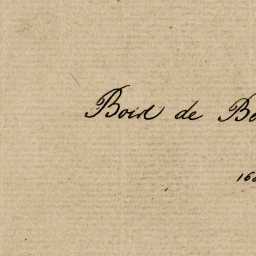 Boid de Bo
16